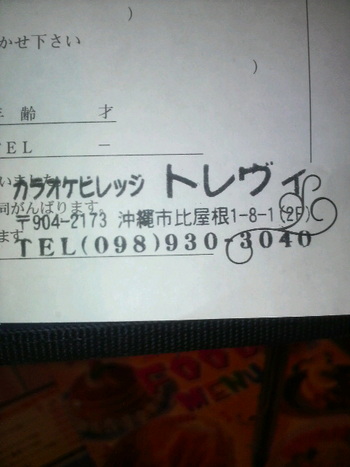 )
かせ下さい
)
年 齢 才
TEL －
いました
カラオケビレッジ トレヴィ
司がんばります
〒904-2173 沖縄市比屋根1-8-1(2F)
ます
TEL(098)930-3040
FOOD
MENU